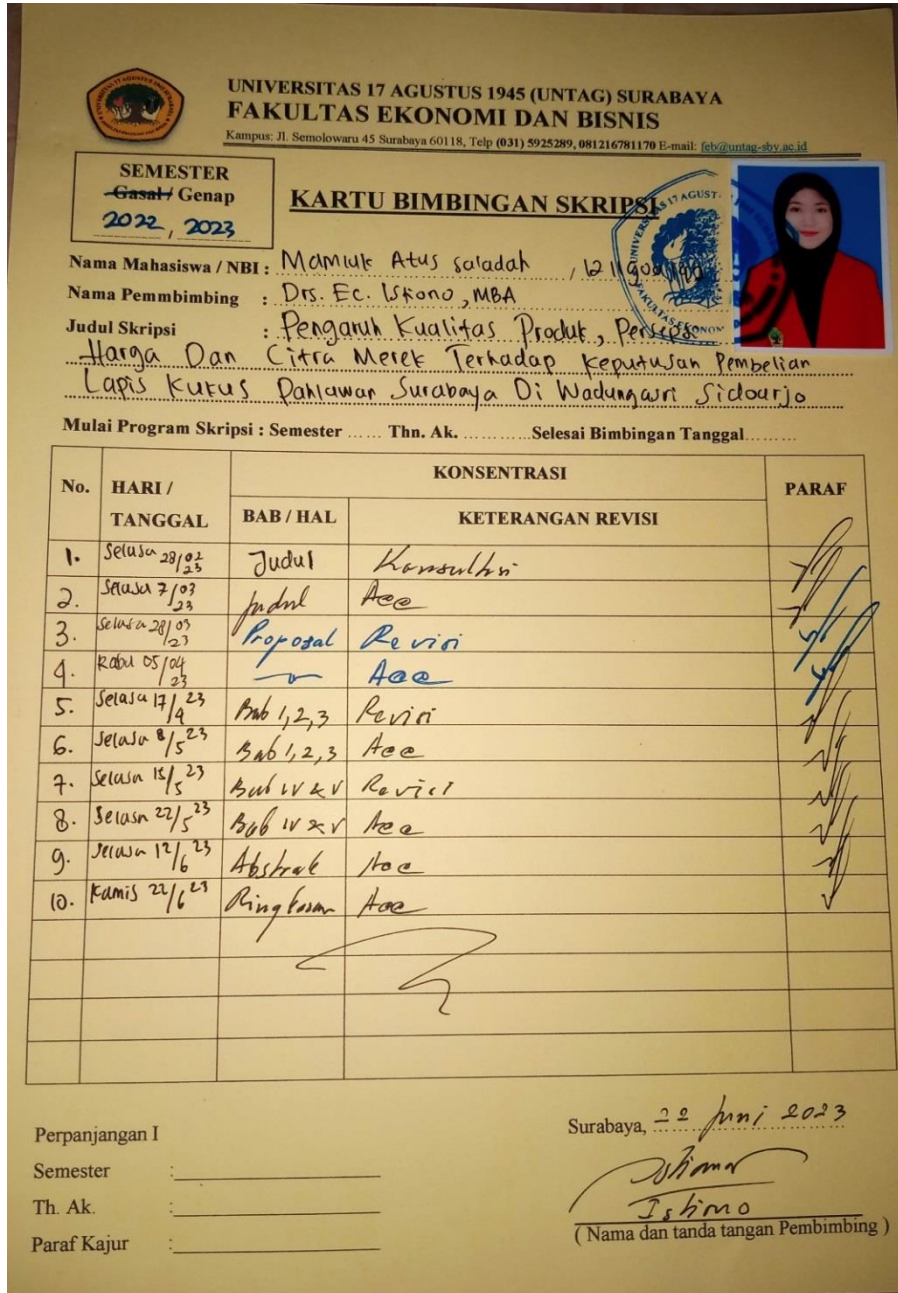 UNIVERSITAS 17 AGUSTUS 1945 (UNTAG) SURABAYA
FAKULTAS EKONOMI DAN BISNIS
Kampus: Jl. Semolowaru 45 Surabaya 60118, Telp (031) 5925289, 081216781170 E-mail: feb@untag-sby.ac.id
SEMESTER
Gasal / Genap
2022, 2023
KARTU BIMBINGAN SKRIPSI
Nama Mahasiswa / NBI : Mamiuk Atus saladah
Nama Pemmbimbing : Drs. Ec. Istiono, MBA
Judul Skripsi : Pengaruh Kualitas Produk, Persepsi
Harga Dan Citra Merek Terhadap Keputusan Pembelian
Lapis Kukus Pahlawan Surabaya Di Wadungasri Sidoarjo
Mulai Program Skripsi : Semester ...... Thn. Ak. ............Selesai Bimbingan Tanggal.........
No. HARI / TANGGAL KONSENTRASI PARAF
BAB / HAL KETERANGAN REVISI
1. Selasa 28/02 23 Judul Konsultasi
2. Selasa 7/03 23 Judul Acc
3. Selasa 28/03 23 Proposal Revisi
4. Rabu 05/04 23 Acc
5. Selasa 17/4 23 Bab 1,2,3 Revisi
6. Selasa 8/5 23 Bab 1,2,3 Acc
7. Selasa 15/5 23 Bab IV & V Revisi
8. Selasa 22/5 23 Bab IV & V Acc
9. Selasa 12/6 23 Abstrak Acc
10. Kamis 22/6 23 Ringkasan Acc
Surabaya, 22 Juni 2023
Perpanjangan I
Semester :
Th. Ak. :
Paraf Kajur :
Istiono
( Nama dan tanda tangan Pembimbing )